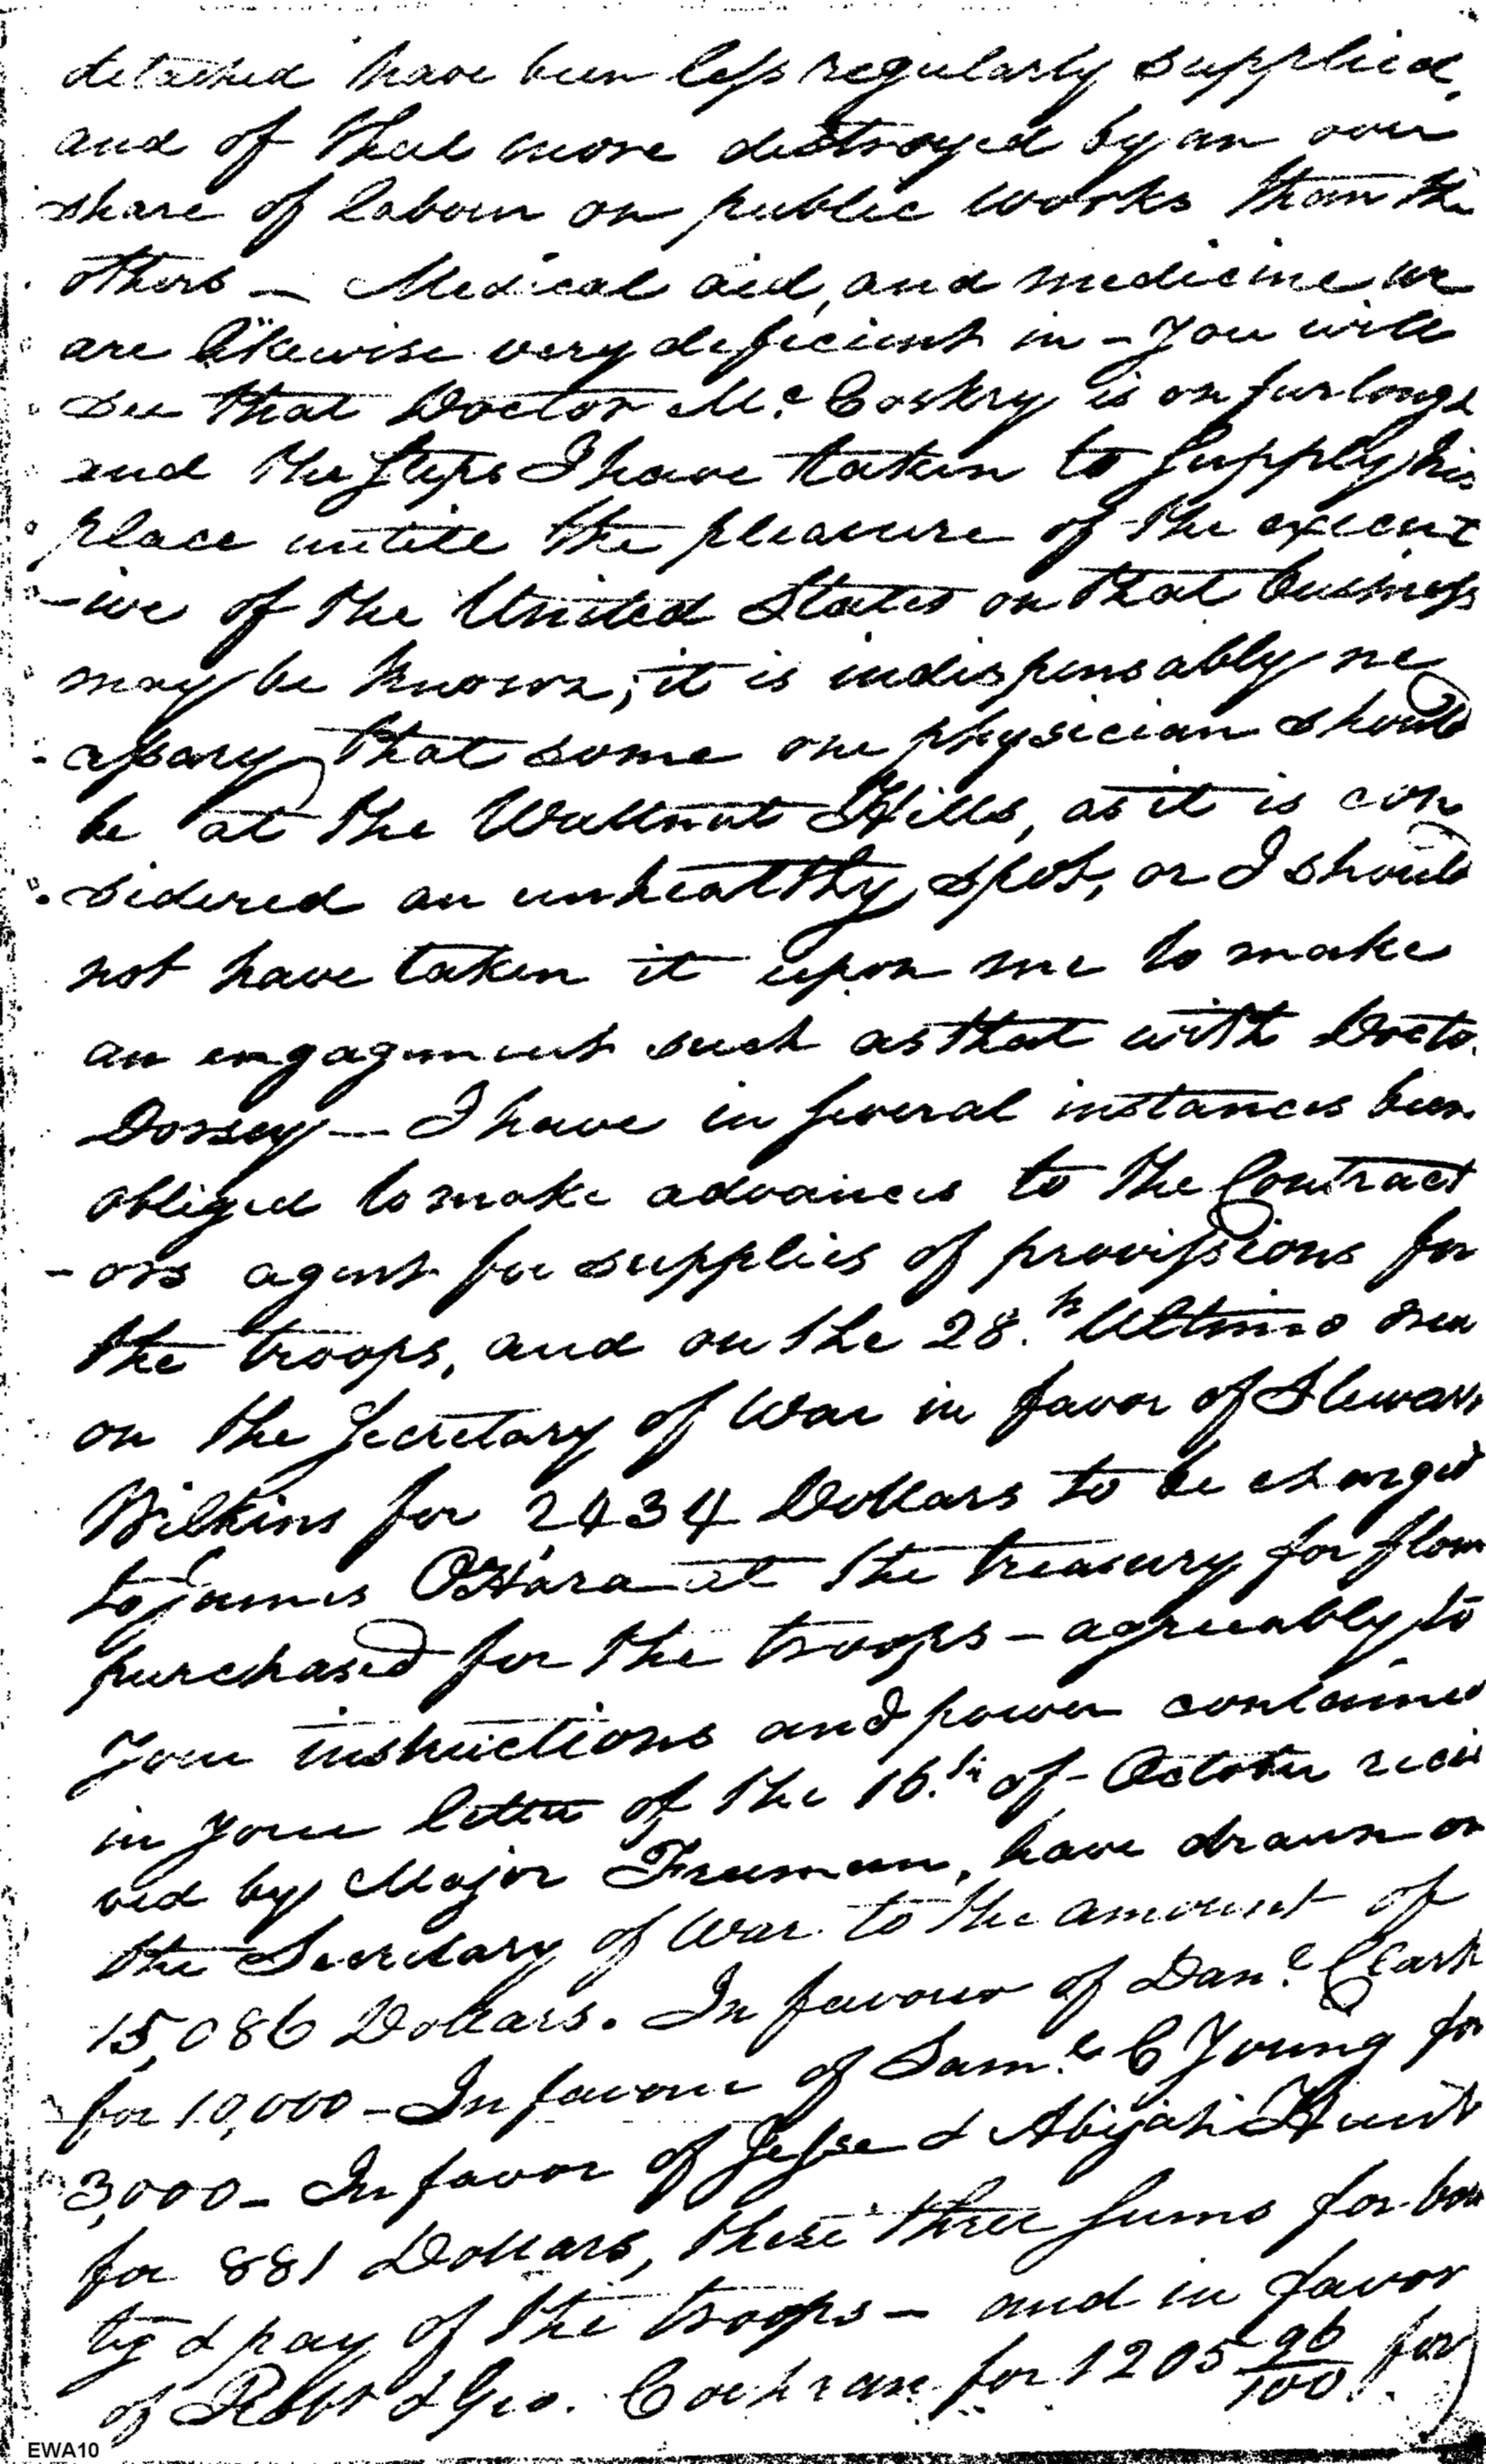 detached have been less regularly supplied,
and of that more destroyed by an over
share of labour on public works than the
others — Medical aid, and medicine we
are likewise very deficient in – You will
see that Doctor Mc. Coskry is on furlough
and the steps I have taken to supply his
place untill the pleasure of the execut
-ive of the United States on that business
may be known; it is indispensably ne
cessary that some one physician should
be at the Wallnut Hills, as it is con
sidered an unhealthy spot, or I should
not have taken it upon me to make
an engagement such as that with Docto.
Dorsey — I have in several instances been
obliged to make advances to the Contract
-ors agent for supplies of provissions for
the troops, and on the 28.th Ultimo drew
on the Secretary of War in favor of Stewart
Wilkins for 2434 Dollars to be charged
to James O'Hara at the treasury for flour
purchased for the troops – agreeably to
your instructions and power contained
in your letter of the 16.th of October recei
ved by Major Freeman, have drawn on
the Secretary of War to the amount of
15,086 Dollars. In favour of Dan.l Clark
for 10,000 – In favour of Sam.l C Young for
3,000 – In favor of Jesse & Abijah Hunt
for 881 Dollars, these three sums for boun
ty & pay of the troops – and in favor
of Robt & Geo. Cochran for 1205 96/100 for
EWA10